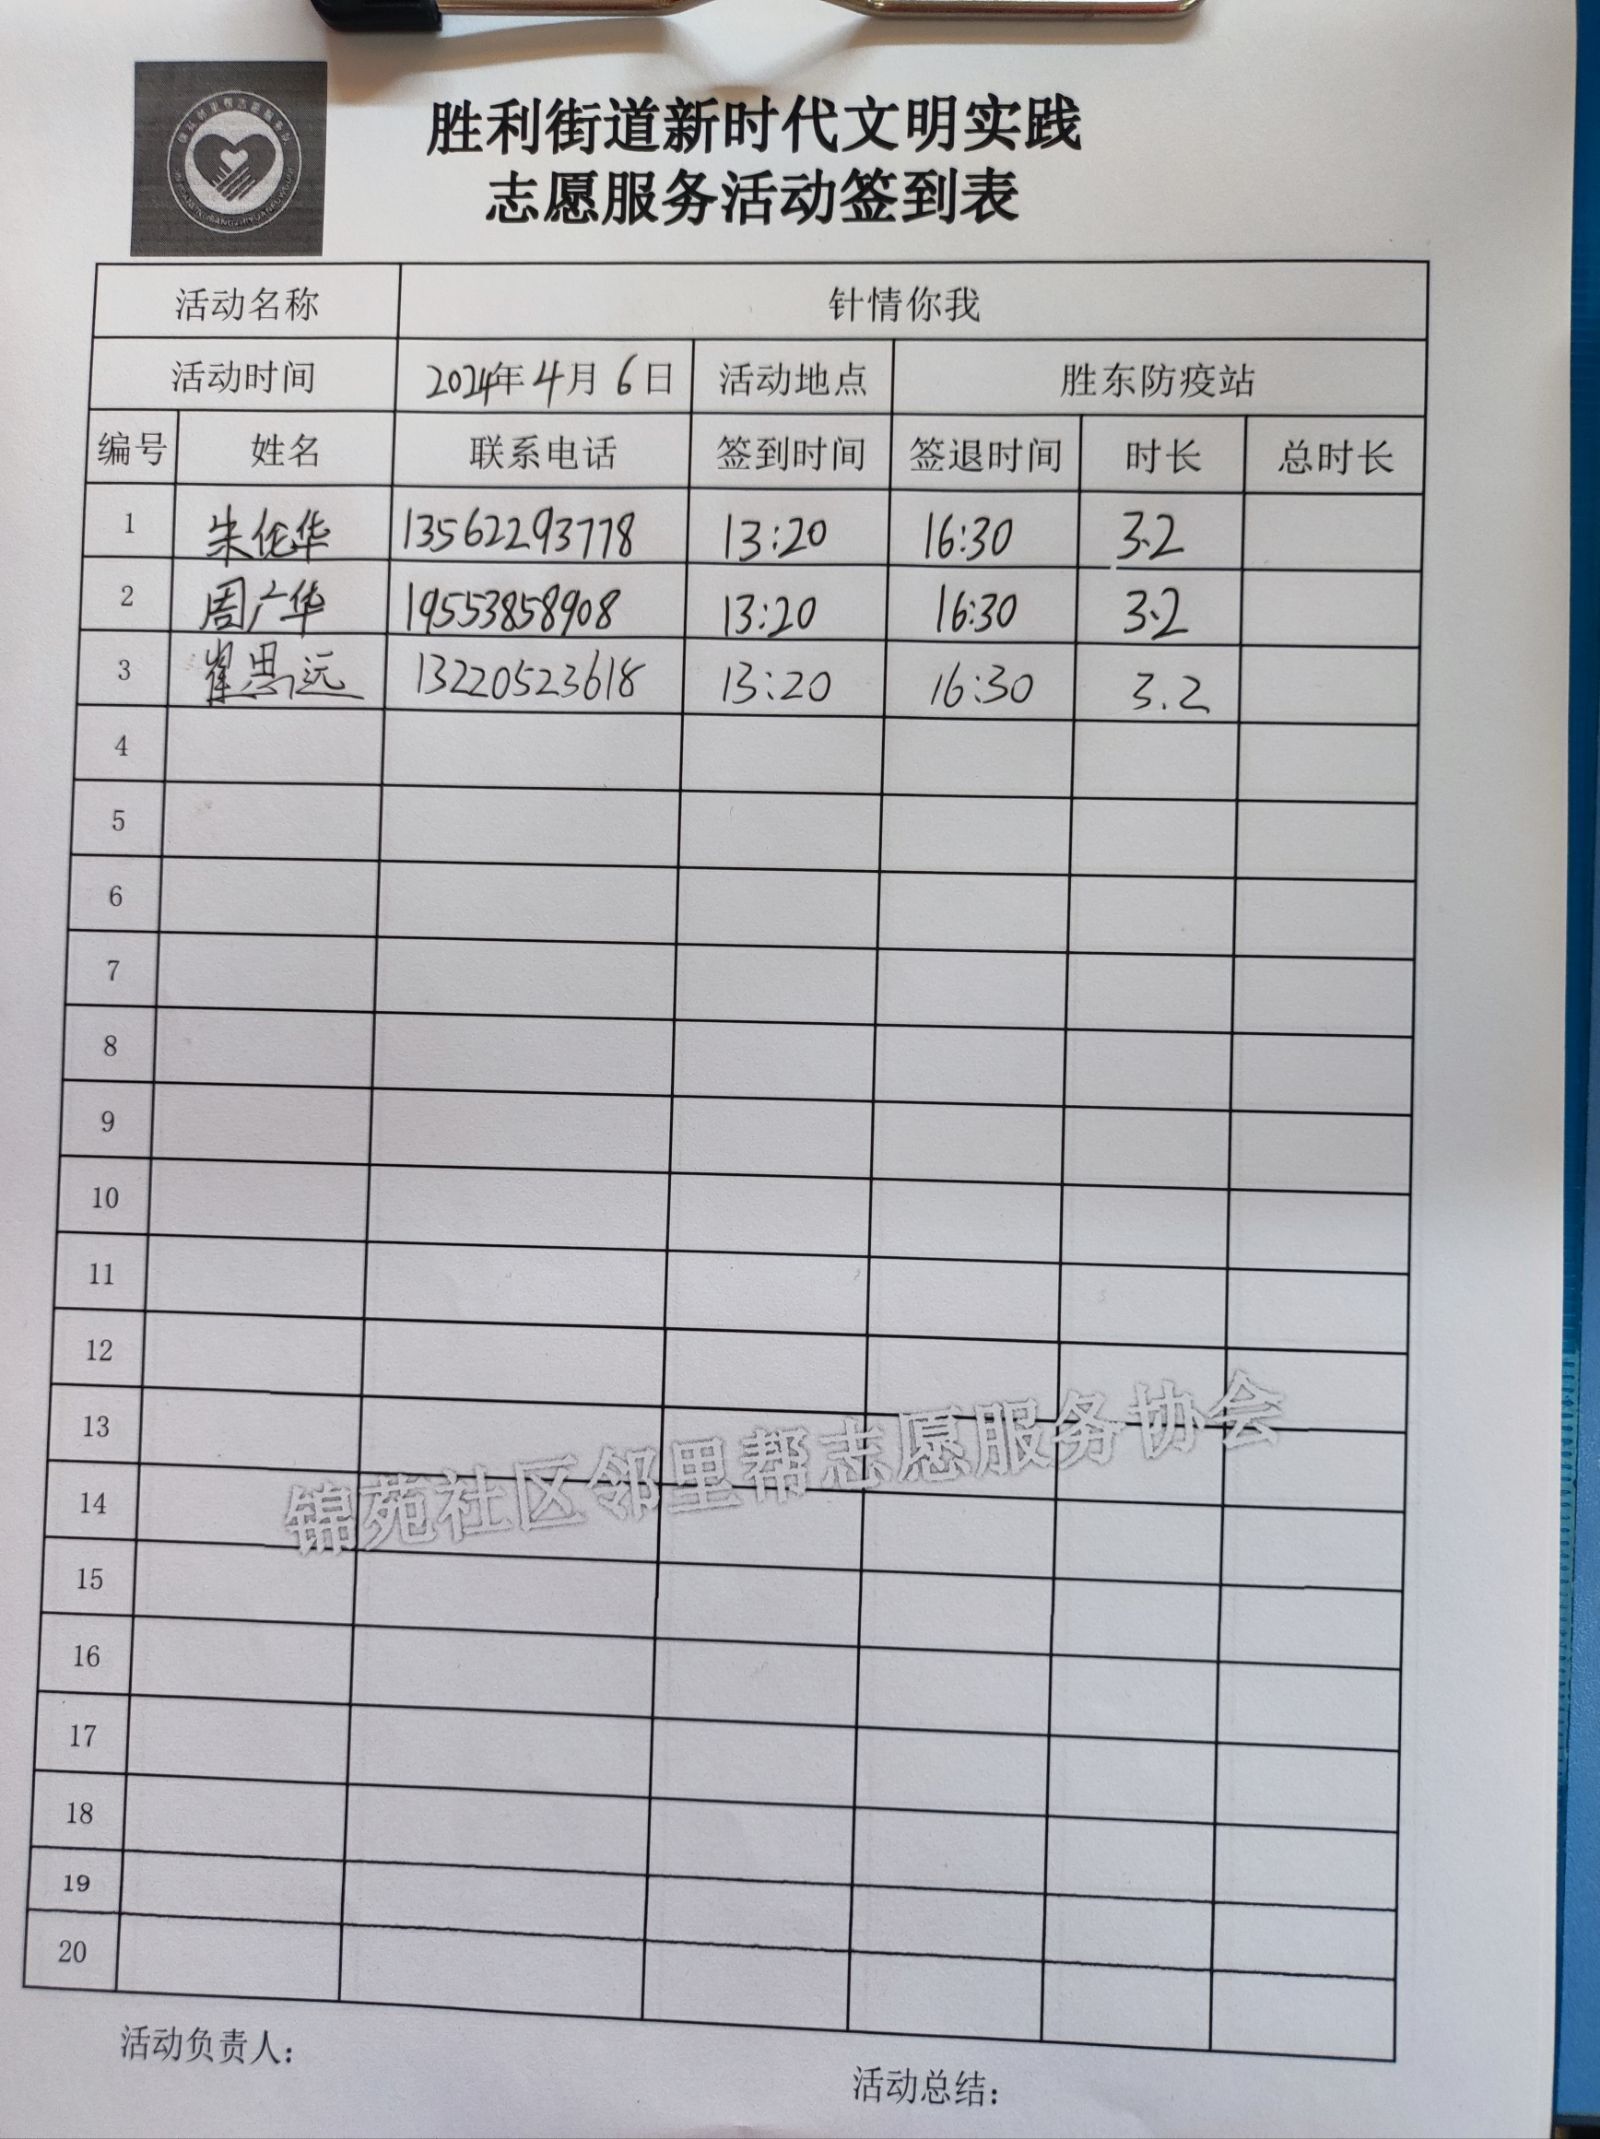 胜利街道新时代文明实践
志愿服务活动签到表
活动名称 针情你我
活动时间 2024年4月6日 活动地点 胜东防疫站
编号 姓名 联系电话 签到时间 签退时间 时长 总时长
1 朱伦华 13562293778 13:20 16:30 3.2
2 周广华 19553858908 13:20 16:30 3.2
3 崔思远 13220523618 13:20 16:30 3.2
4
5
6
7
8
9
10
11
12
13
锦苑社区邻里帮志愿服务协会
14
15
16
17
18
19
20
活动负责人：
活动总结：